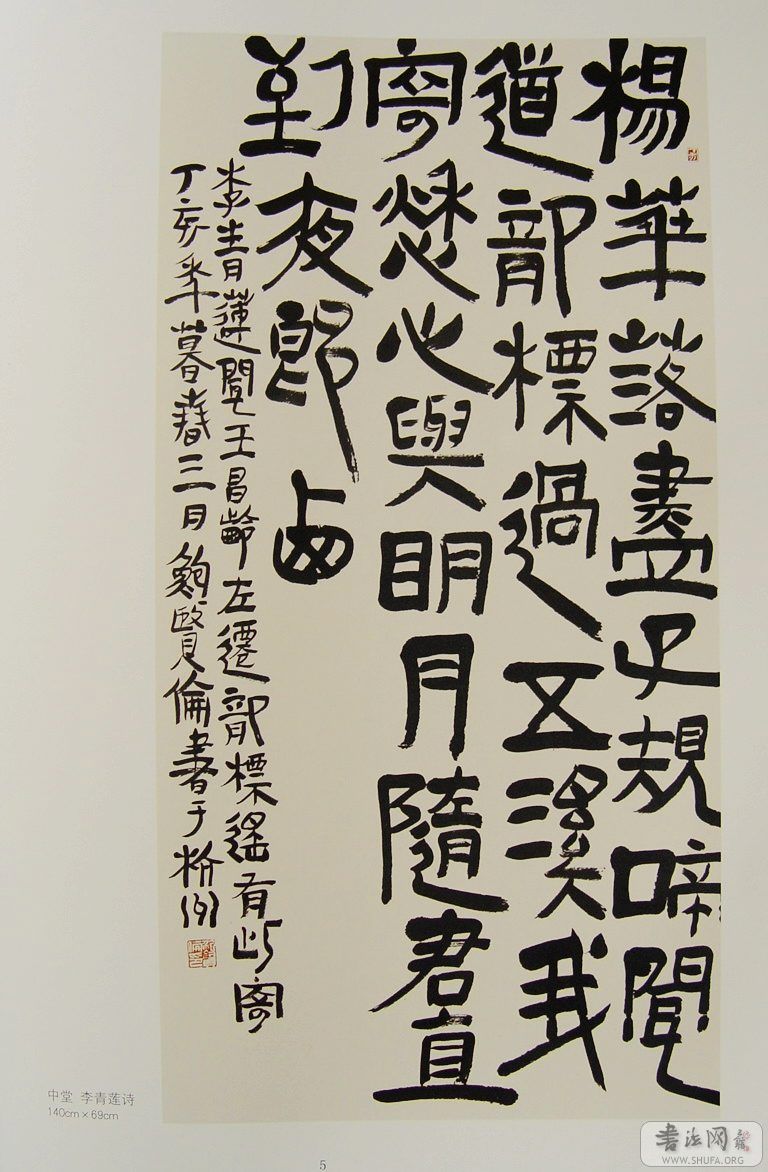 楊華落盡子規啼聞
道龍標過五溪我
寄愁心與明月隨君直
到夜郎西
李青蓮聞王昌齡左遷龍標遙有此寄
丁亥年暮春三月鮑賢倫書于州
中堂 李青莲诗
140cm×69cm
5
書法网
WWW.SHUFA.ORG